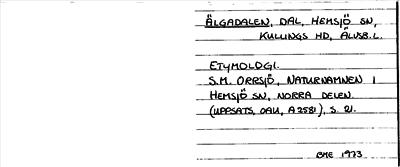 ÄLGADALEN, DAL, HEMSJÖ SN,
KULLINGS HD, ÄLVSB. L.
ETYMOLOGI.
S.M. ORRSJÖ, NATURNAMNEN I
HEMSJÖ SN, NORRA DELEN.
(UPPSATS, OAU, A3581), S. 21.
BME 1973